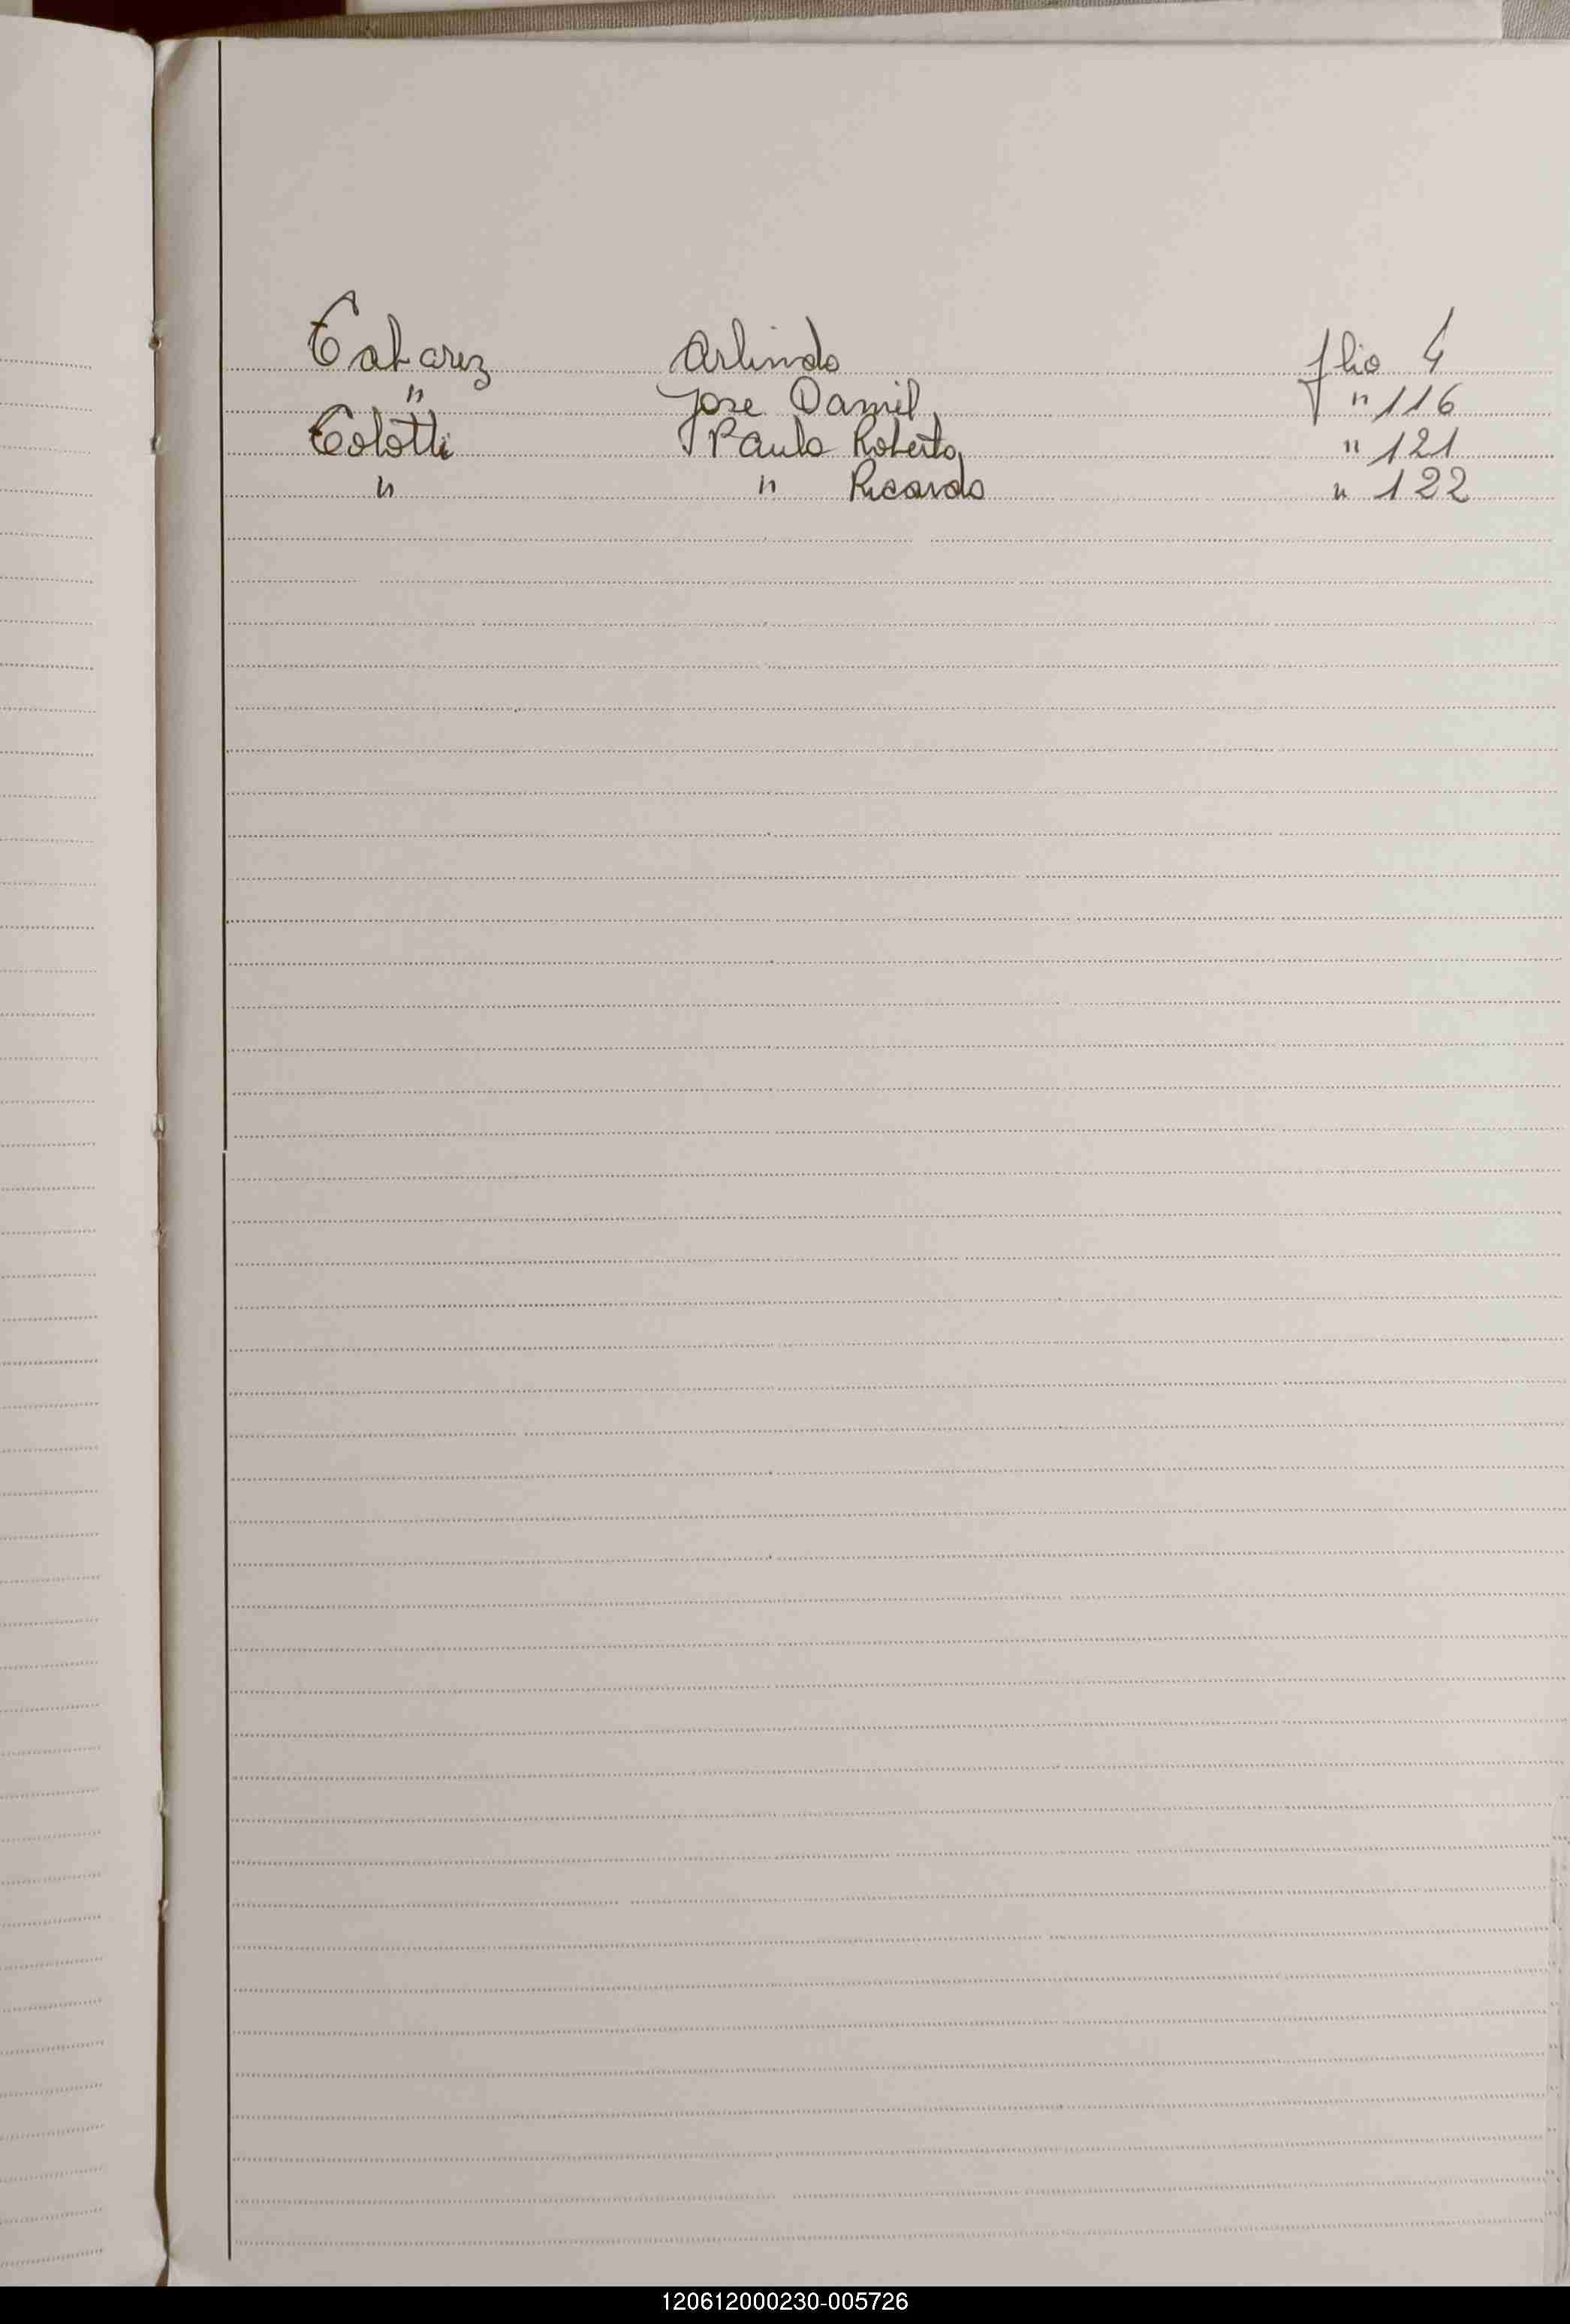 Tabarez Arlindo flio 4
" Jose Daniel " 116
Tolotti Paulo Roberto " 121
" " Ricardo " 122
120612000230-005726